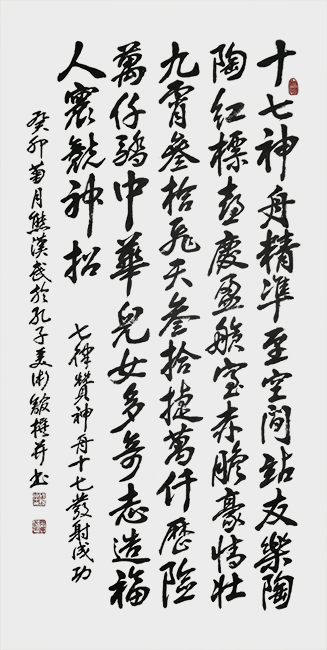 十七神舟精準至空間站友樂陶
陶紅標喜慶盈艙室赤膽豪情壯
九霄叁拾飛天叁拾捷萬仟歷險
萬仔驕中華兒女多奇志造福
人寰競神招
七律贊神舟十七發射成功
癸卯菊月熊漢武於孔子美術館撰并書